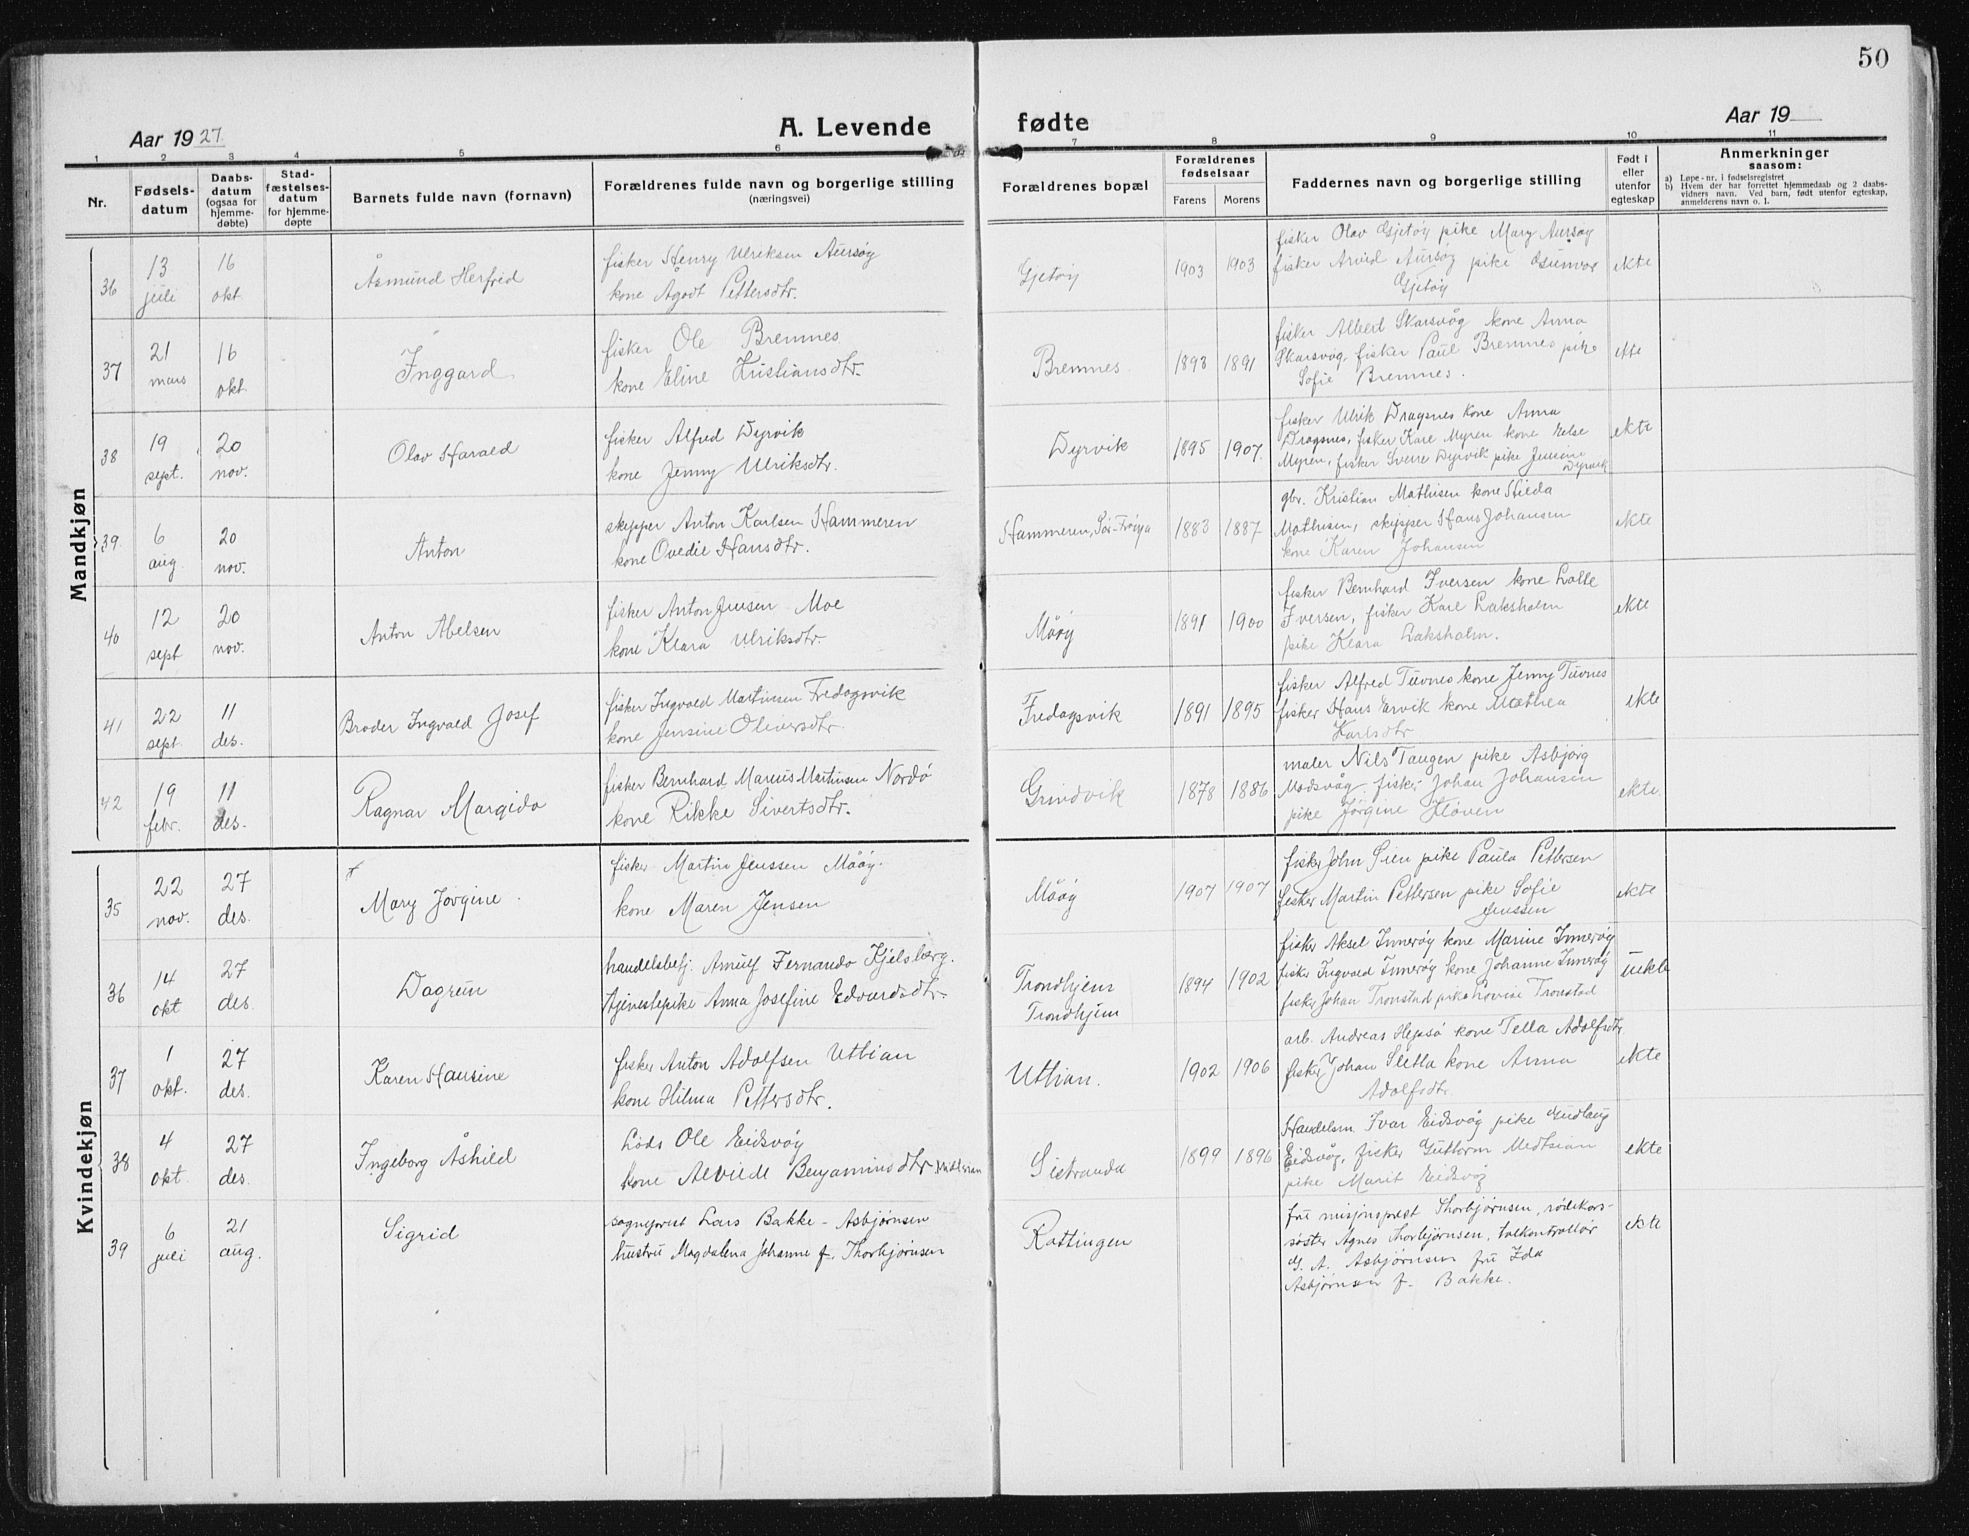 50
Aar 1927
A. Levende fødte
Aar 19
1 2 3 4 5 6 7 8 9 10 11
Nr.
Fødsels-
datum
Daabs-
datum
(ogsaa for
hjemme-
døbte)
Stad-
fæstelses-
datum
for hjemme-
døpte
Barnets fulde navn (fornavn)
Forældrenes fulde navn og borgerlige stilling
(næringsvei)
Forældrenes bopæl
Forældrenes
fødselsaar
Farens
Morens
Faddernes navn og borgerlige stilling
Født i
eller
utenfor
egteskap
Anmerkninger
saasom:
a) Løpe-nr. i fødselsregistret
b) Hvem der har forrettet hjemmedaab og 2 daabs-
vidners navn. Ved barn, født utenfor egteskap,
anmelderens navn o. l.
Mandkjøn
36
13
juli
16
okt
Åsmund Herfred
fisker Henry Ulriksen Aursøy
kone Ågodt Pettersdtr.
Gjetøy
1903
1903
fisker Olav Gjetøy pike Mary Aursøy
fisker Arvid Aursøy pike
Gjetøy
ekte
37
21
mars
16
okt
Inggard
fisker Ole Bremnes
kone Eline Kristiansdtr.
Bremnes
1893
1891
fisker Albert Skarsvåg kone Anna
Skarsvåg, fisker Paul Bremnes pike
Sofie Bremnes.
ekte
38
19
sept.
20
nov.
Olav Harald
fisker Alfred Dyrvik
kone Jenny Ulriksdtr.
Dyrvik
1895
1907
fisker Ulrik Dragsnes kone Anna
Dragsnes, fisker Kare Myren kone Else
Myren, fisker Sverre Dyrvik pike Jensine
Dyrvik
ekte
39
6
aug
20
nov.
Anton
skipper Anton Karlsen Hammeren
kone Ovedie Hansdtr.
Hammeren, Sør-Frøya
1883
1887
gbr. Kristian Mathisen kone Hilda
Mathisen, skipper Hans Johansen
kone Karen Johansen
ekte
40
12
sept
20
nov.
Anton Abelsen
fisker Anton Jensen Moe
kone Klara Ulriksdtr.
Måøy
1891
1900
fisker Bernhard Iversen kone Lotte
Iversen, fisker Karl Laksholm
pike Klara Laksholm.
ekte
41
22
sept
11
des.
Broder Ingvald Josef
fisker Ingvald Martinsen Fredagsvik
kone Jensine Oliversdtr.
Fredagsvik
1891
1895
fisker Alfred Tuvnes kone Jenny Tuvnes
fisker Hans Ervik kone Mathea
Karlsdtr
ekte
42
19
febr.
11
des.
Ragnar Margido
fisker Bernhard Marius Martinsen Nordø
kone Rikke Sivertsdtr.
Grindvik
1878
1886
maler Nils Taugen pike Asbjørg
Madsvåg, fisker Johan Johansen
pike Jørgine Kløven
ekte
Kvindekjøn
35
22
nov.
27
des.
Mary Jørgine
fisker Martin Jenssen Måøy.
kone Maren Jensen
Måøy
1907
1907
fisker John Sien pike Paula Pettersen
fisker Martin Pettersen pike Sofie
Jenssen
ekte
36
14
okt
27
des.
Dagrun
handelsbetj. Arnulf Fernando Kjelsberg.
tjenestepike Anna Josefine Edvardsdtr.
Trondhjem
Trondhjem
1894
1902
fisker Aksel Innerøy kone Marine Innerøy
fisker Ingvald Innerøy kone Johanne Innerøy
fisker Johan Tronstad pike Lovise Tronstad
uekte
37
1
okt.
27
des.
Karen Hansine
fisker Anton Adolfsen Uttian
kone Hilma Pettersdtr.
Uttian.
1902
1906
arb. Andreas Hepsø kone Tella Adolfsdtr
fisker Johan Sletta kone Anna
Adolfsdtr
ekte
38
4
okt.
27
des.
Ingeborg Åshild
Lods Ole Eidsvåg
kone Alvilde Benjaminsdtr
Sistranda
1899
1896
Handelsm Ivar Eidsvåg pike Gudlaug
Eidsvåg, fisker Guttorm Midtsian
pike Marit Eidsvåg
ekte
39
6
juli
21
aug.
Sigrid
sogneprest Lars Bakke - Asbjørnsen
hustru Magdalena Johanne f. Thorbjørnsen
Rottingen
fru misjonsprest Thorbjørnsen, rødekors-
søster Agnes Thorbjørnsen, tolkontrollør
G. A. Asbjørnsen fru Ida
Asbjørnsen f. Bakke.
ekte